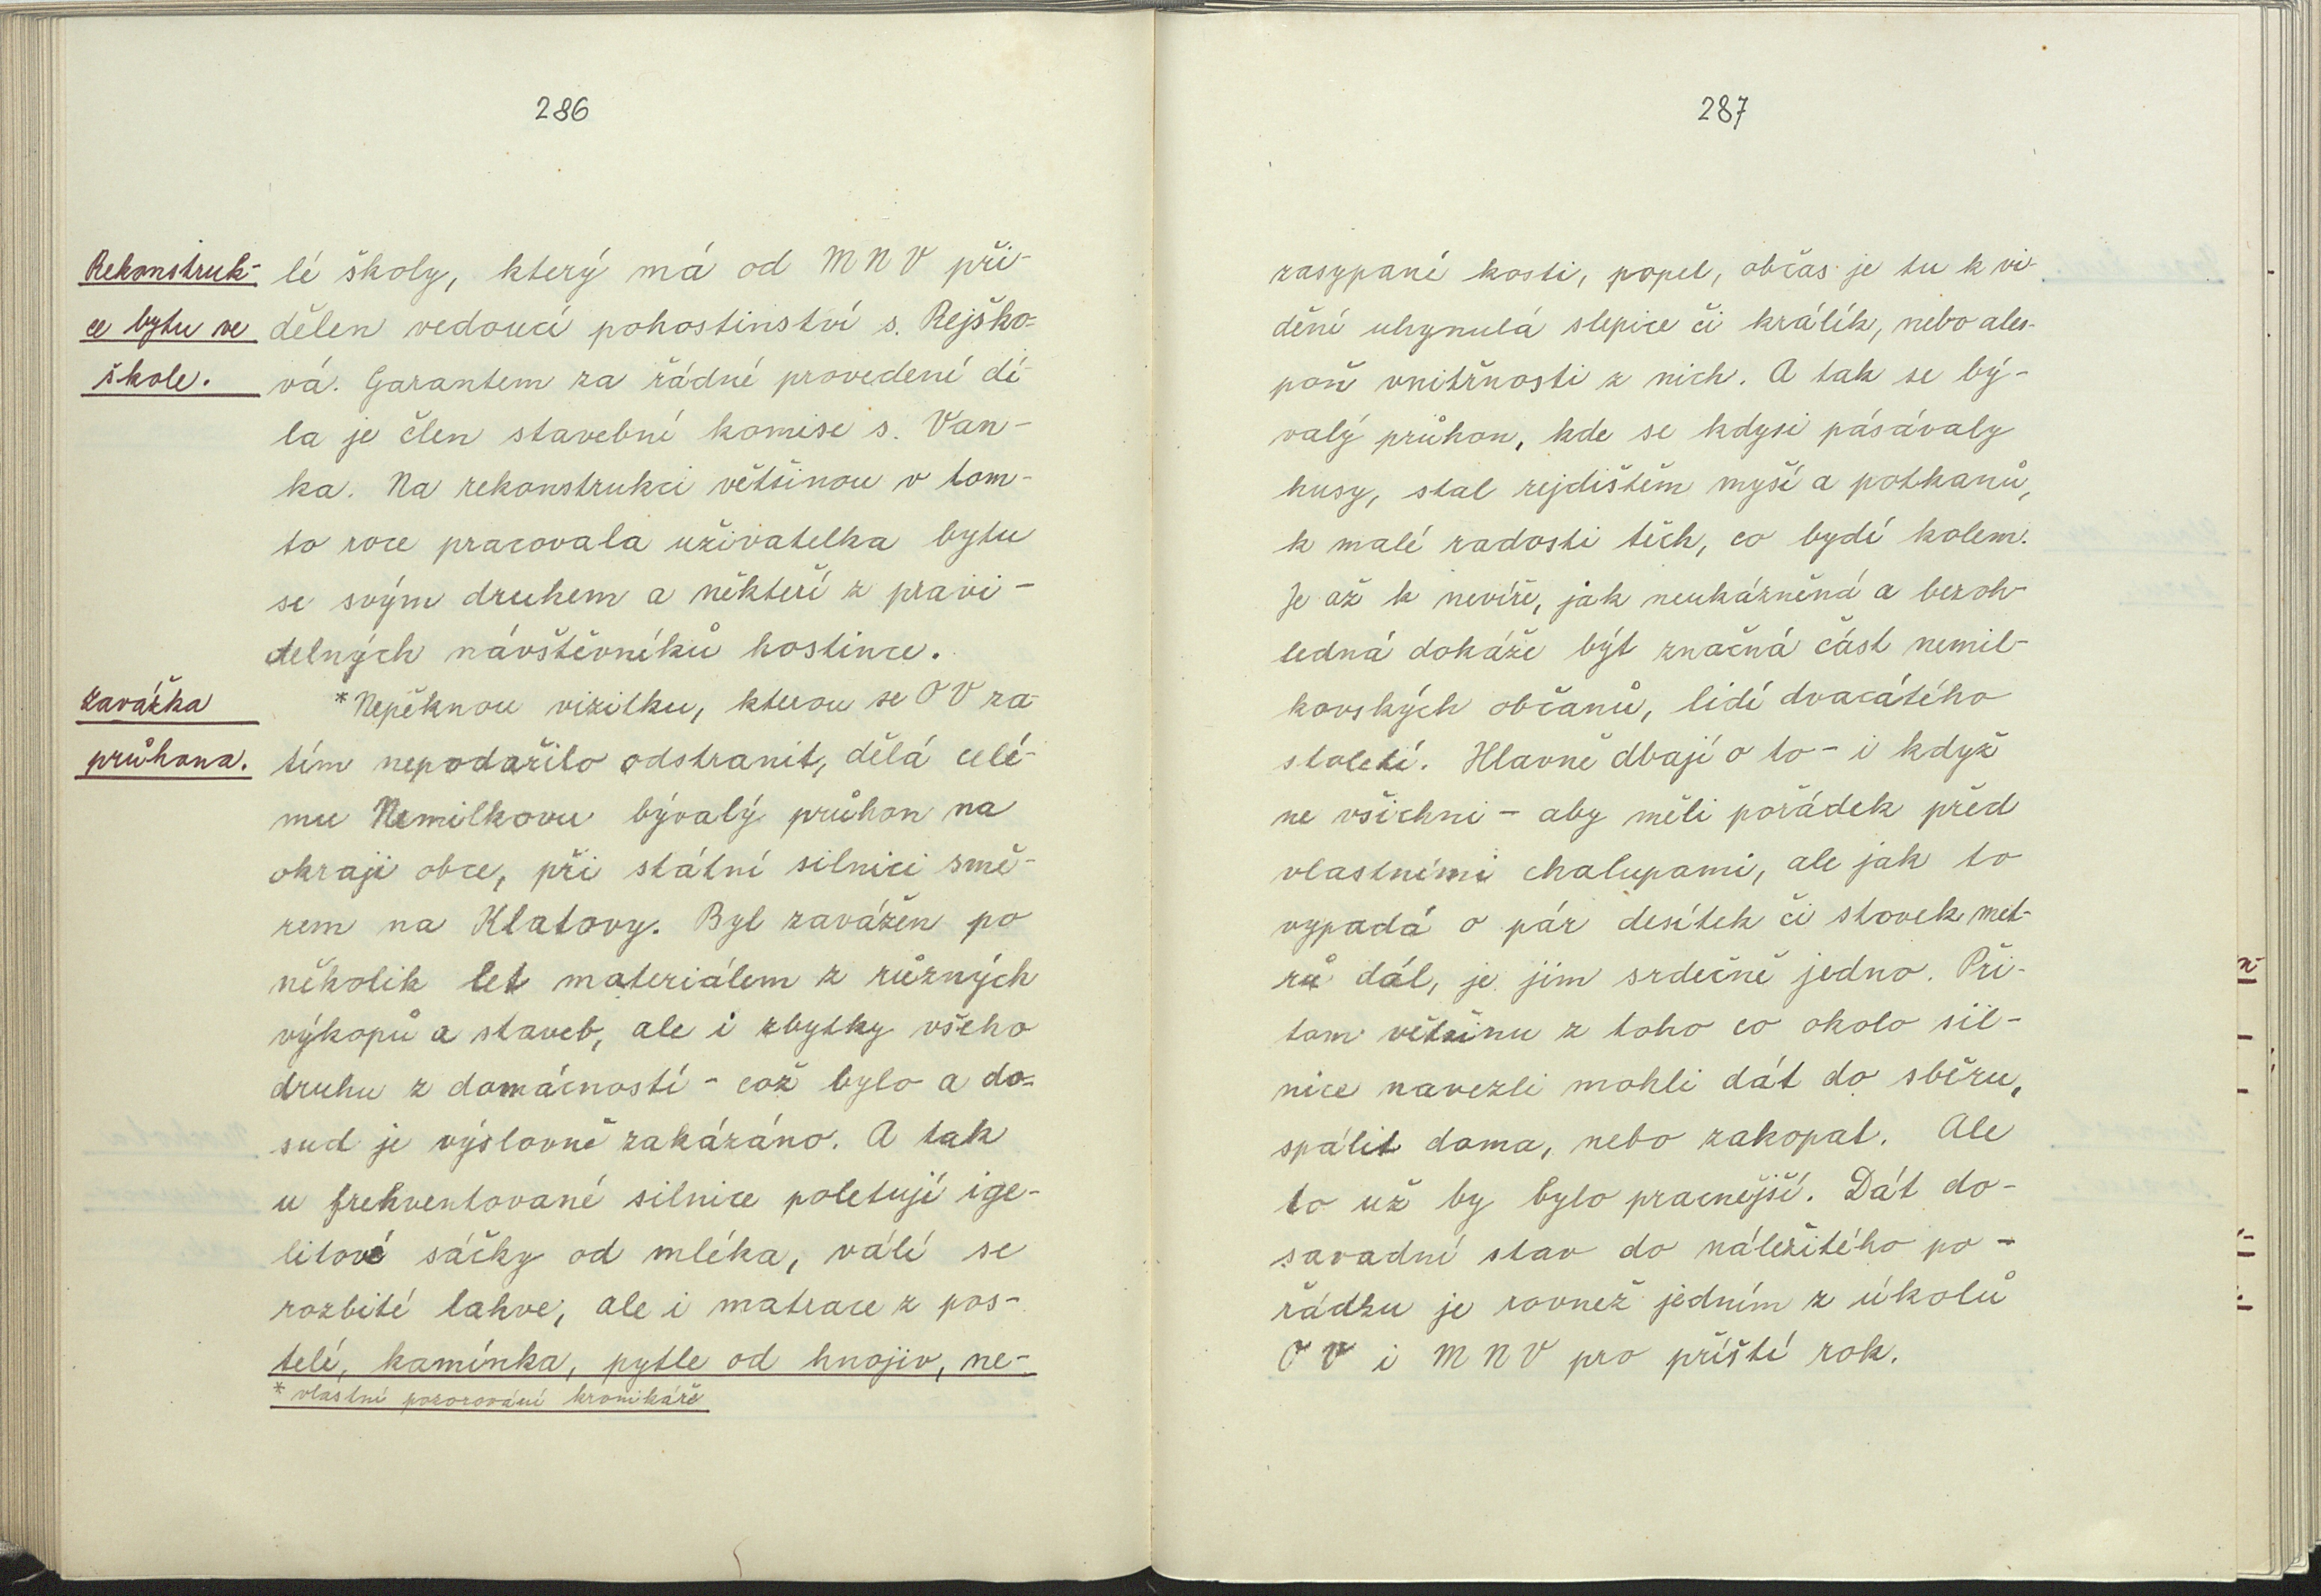 286
Rekonstruk-
ce bytu ve
škole.
lé školy, který má od MNV při-
dělen vedoucí pohostinství s. Rejško-
vá. Garantem za řádné provedení dí-
la je člen stavební komise s. Van-
ka. Na rekonstrukci většinou v tom-
to roce pracovala uživatelka bytu
se svým druhem a někteří z pravi-
delných návštěvníků hostince.
zavážka
průhona.
*Nepěknou vizitku, kterou se OV za-
tím nepodařilo odstranit, dělá celé-
mu Nemilkovu bývalý průhon na
okraji obce, při státní silnici smě-
rem na Klatovy. Byl zavážen po
několik let materiálem z různých
výkopů a staveb, ale i zbytky všeho
druhu z domácností - což bylo a do-
sud je výslovně zakázáno. A tak
u frekventované silnice poletují ige-
litové sáčky od mléka, válí se
rozbité lahve, ale i matrace z pos-
telí, kamínka, pytle od hnojiv, ne-
* vlastní pozorování kronikáře
287
zasypané kosti, popel, občas je tu k vi-
dění uhynulá slepice či králík, nebo ales-
poň vnitřnosti z nich. A tak se bý-
valý průhon, kde se kdysi pásávaly
husy, stal rejdištěm myší a potkanů,
k malé radosti těch, co bydí kolem.
Je až k nevíře, jak neukázněná a bezoh-
ledná dokáže být značná část nemil-
kovských občanů, lidí dvacátého
století. Hlavně dbají o to - i když
ne všichni - aby měli pořádek před
vlastními chalupami, ale jak to
vypadá o pár desítek či stovek met-
rů dál, je jim srdečně jedno. Při-
tom většinu z toho co okolo sil-
nice navezli mohli dát do sběru,
spálit doma, nebo zakopat. Ale
to už by bylo pracnější. Dát do-
savadní stav do náležitého po-
řádku je rovnež jedním z úkolů
OV i MNV pro příští rok.